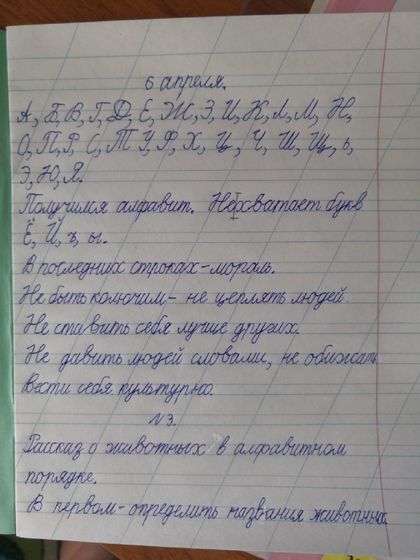 6 апреля.
А, Б, В, Г, Д, Е, Ж, З, И, К, Л, М, Н,
О, П, Р, С, Т, У, Ф, Х, Ц, Ч, Ш, Щ, ь,
Э, Ю, Я.
Получился алфавит. Не хватает букв
Ё, Й, ъ, ы.
В последних строках - мораль.
Не быть колючим - не цеплять людей.
Не ставить себя лучше других.
Не давить людей словами, не обижать
Вести себя культурно.
N 3.
Рассказ о животных в алфавитном
порядке.
В первом - определить названия животных.